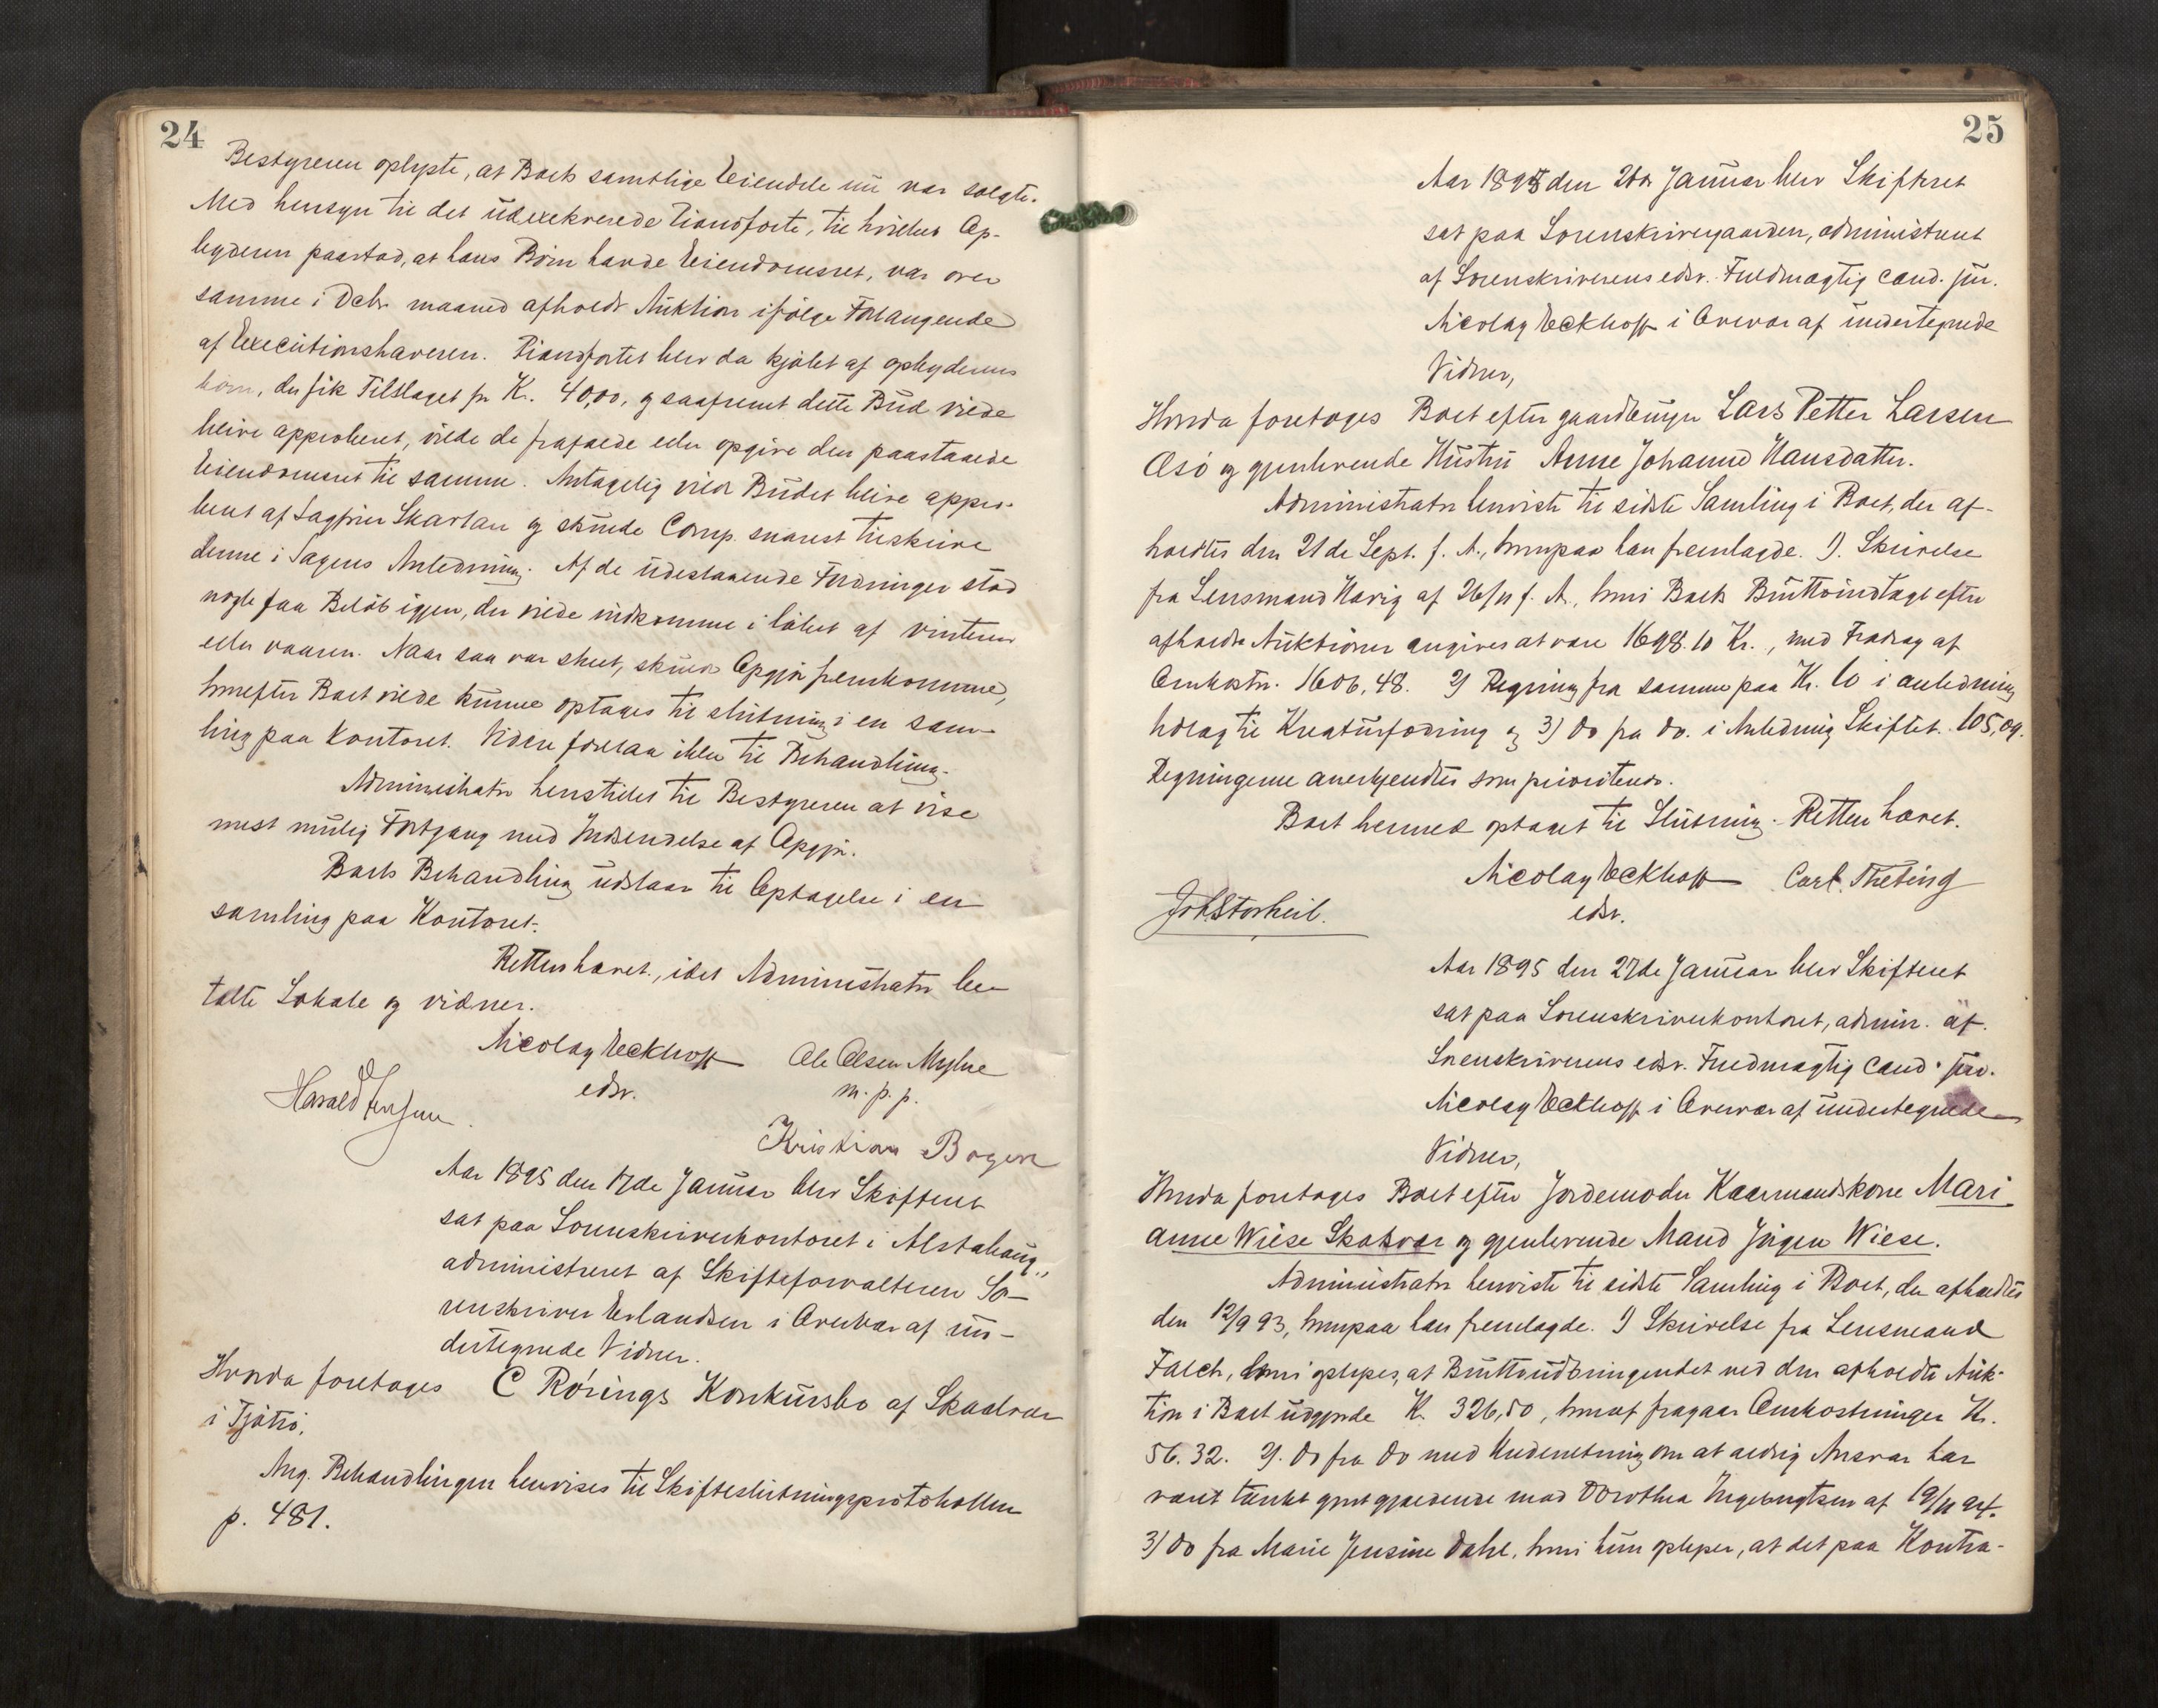 24
Bestyreren oplyste, at Boets samtlige Eiendele nu var solgte.
Med hensyn til det udexekverede Pianoforte, til hvilket Op-
byderen paastod, at hans Børn havde Eiendomsret, var over
samme i Debr. maaned afholdt Auktion ifølge Forlangende
af Executionshaveren. Pianofortet blev da kjøbt af opbyderens
børn, der fik Tilslaget for Kr. 40,00, og saafremt dette Bud vilde
blive approberet, vilde de frafalde eller opgive den paastaaede
Eiendomsret til samme. Antagelig vilde Budet blive appro-
beret af Sagfører Skarlan og skulde Comp. snarest tilskrive
denne i Sagens Anledning. Af de udestaaende Fordringer stod
nogle faa Beløb igjen, der vilde indkomme i løbet af vinteren
eller vaaren. Naar saa var skeet, skulde Opgjør fremkomme,
hvorefter Boet vilde kunne optages til slutning i en sam-
ling paa Kontoret. Videre forelaa ikke til Behandling.
Administrator henstillet til Bestyreren at vise
mest mulig Fortgang med Indsendelse af Opgjør.
Boets Behandling udstaar til Optagelse i en
samling paa Kontoret.
Retten hævet, idet Administrator be-
talte Lokale og vidner.
Nicolay Eeckhoff Ole Olsen Myhre
edsv. m. p. p.
Harald Jensen
Kristian Bogen
Aar 1895 den 17de Januar blev Skifteret
sat paa Sorenskriverkontoret i Alstahaug,
administreret af Skifteforvalteren So-
renskriver Erlandsen i Overvær af un-
dertegnede Vidner.
Hvorda foretoges C Rørings Konkursbo af Skaalvær
i Tjøtø.
Ang. Behandlingen henvises til Skifteslutningsprotokollen
p. 481.
25
Aar 1895 den 26de Januar blev Skifteret
sat paa Sorenskrivergaarden, administreret
af Sorenskriverens edsv. Fuldmægtig cand. jur.
Nicolay Eeckhoff i Overvær af undertegnede
Vidner,
Hvorda foretoges Boet efter gaardbruger Lars Petter Larsen
Øsø og gjenlevende Hustru Anne Johanna Hansdatter.
Administrator henviste til sidste Samling i Boet, der af-
holdtes den 21de Sept. f. A., hvorpaa han fremlagde. 1). Skrivelse
fra Lensmand Havig af 26/11 f. A., hvori Boets Bruttoindtægt efter
afholdte Auktioner angives at være 1698.10 Kr., med Fradrag af
Omkostn. 1606,48. 2) Regning fra samme paa Kr. 10 i anledning
udlæg til Kreaturfodring og 3) do fra do. i Anledning Skiftet. 105,09.
Regningerne anerkjendtes som prioriterede.
Boet hermed optaget til Slutning. Retten hævet.
Nicolay Eeckhoff Carl Theting
Joh. Storheil. edsv.
Aar 1895 den 27de Januar blev Skifteret
sat paa Sorenskriverkontoret, admin. af
Sorenskriverens edsv. Fuldmægtig cand. jur.
Nicolay Eeckhoff i Overvær af undertegnede
Vidner,
Hvorda foretoges Boet efter Jordemoder Kaarmandskone Mari
anne Wiese Skotsvær og gjenlevende Mand Jørgen Wiese.
Administrator henviste til sidste Samling i Boet, der afholdtes
den 12/9 93, hvorpaa han fremlagde. 1) Skrivelse fra Lensmand
Falch, hvori oplyses, at Bruttoudbringendet ved den afholdte Auk-
tion i Boet udgjorde Kr. 326,50, hvoraf fragaar Omkostninger Kr.
56.32. 2). do fra do med Underretning om at aldrig Ansvar har
været tænkt gjort gjældende mod Dorthea Ingebrigtsen af 19/11 94.
3) do fra Marie Jensine Dahl, hvori hun oplyser, at det paa Kontra-